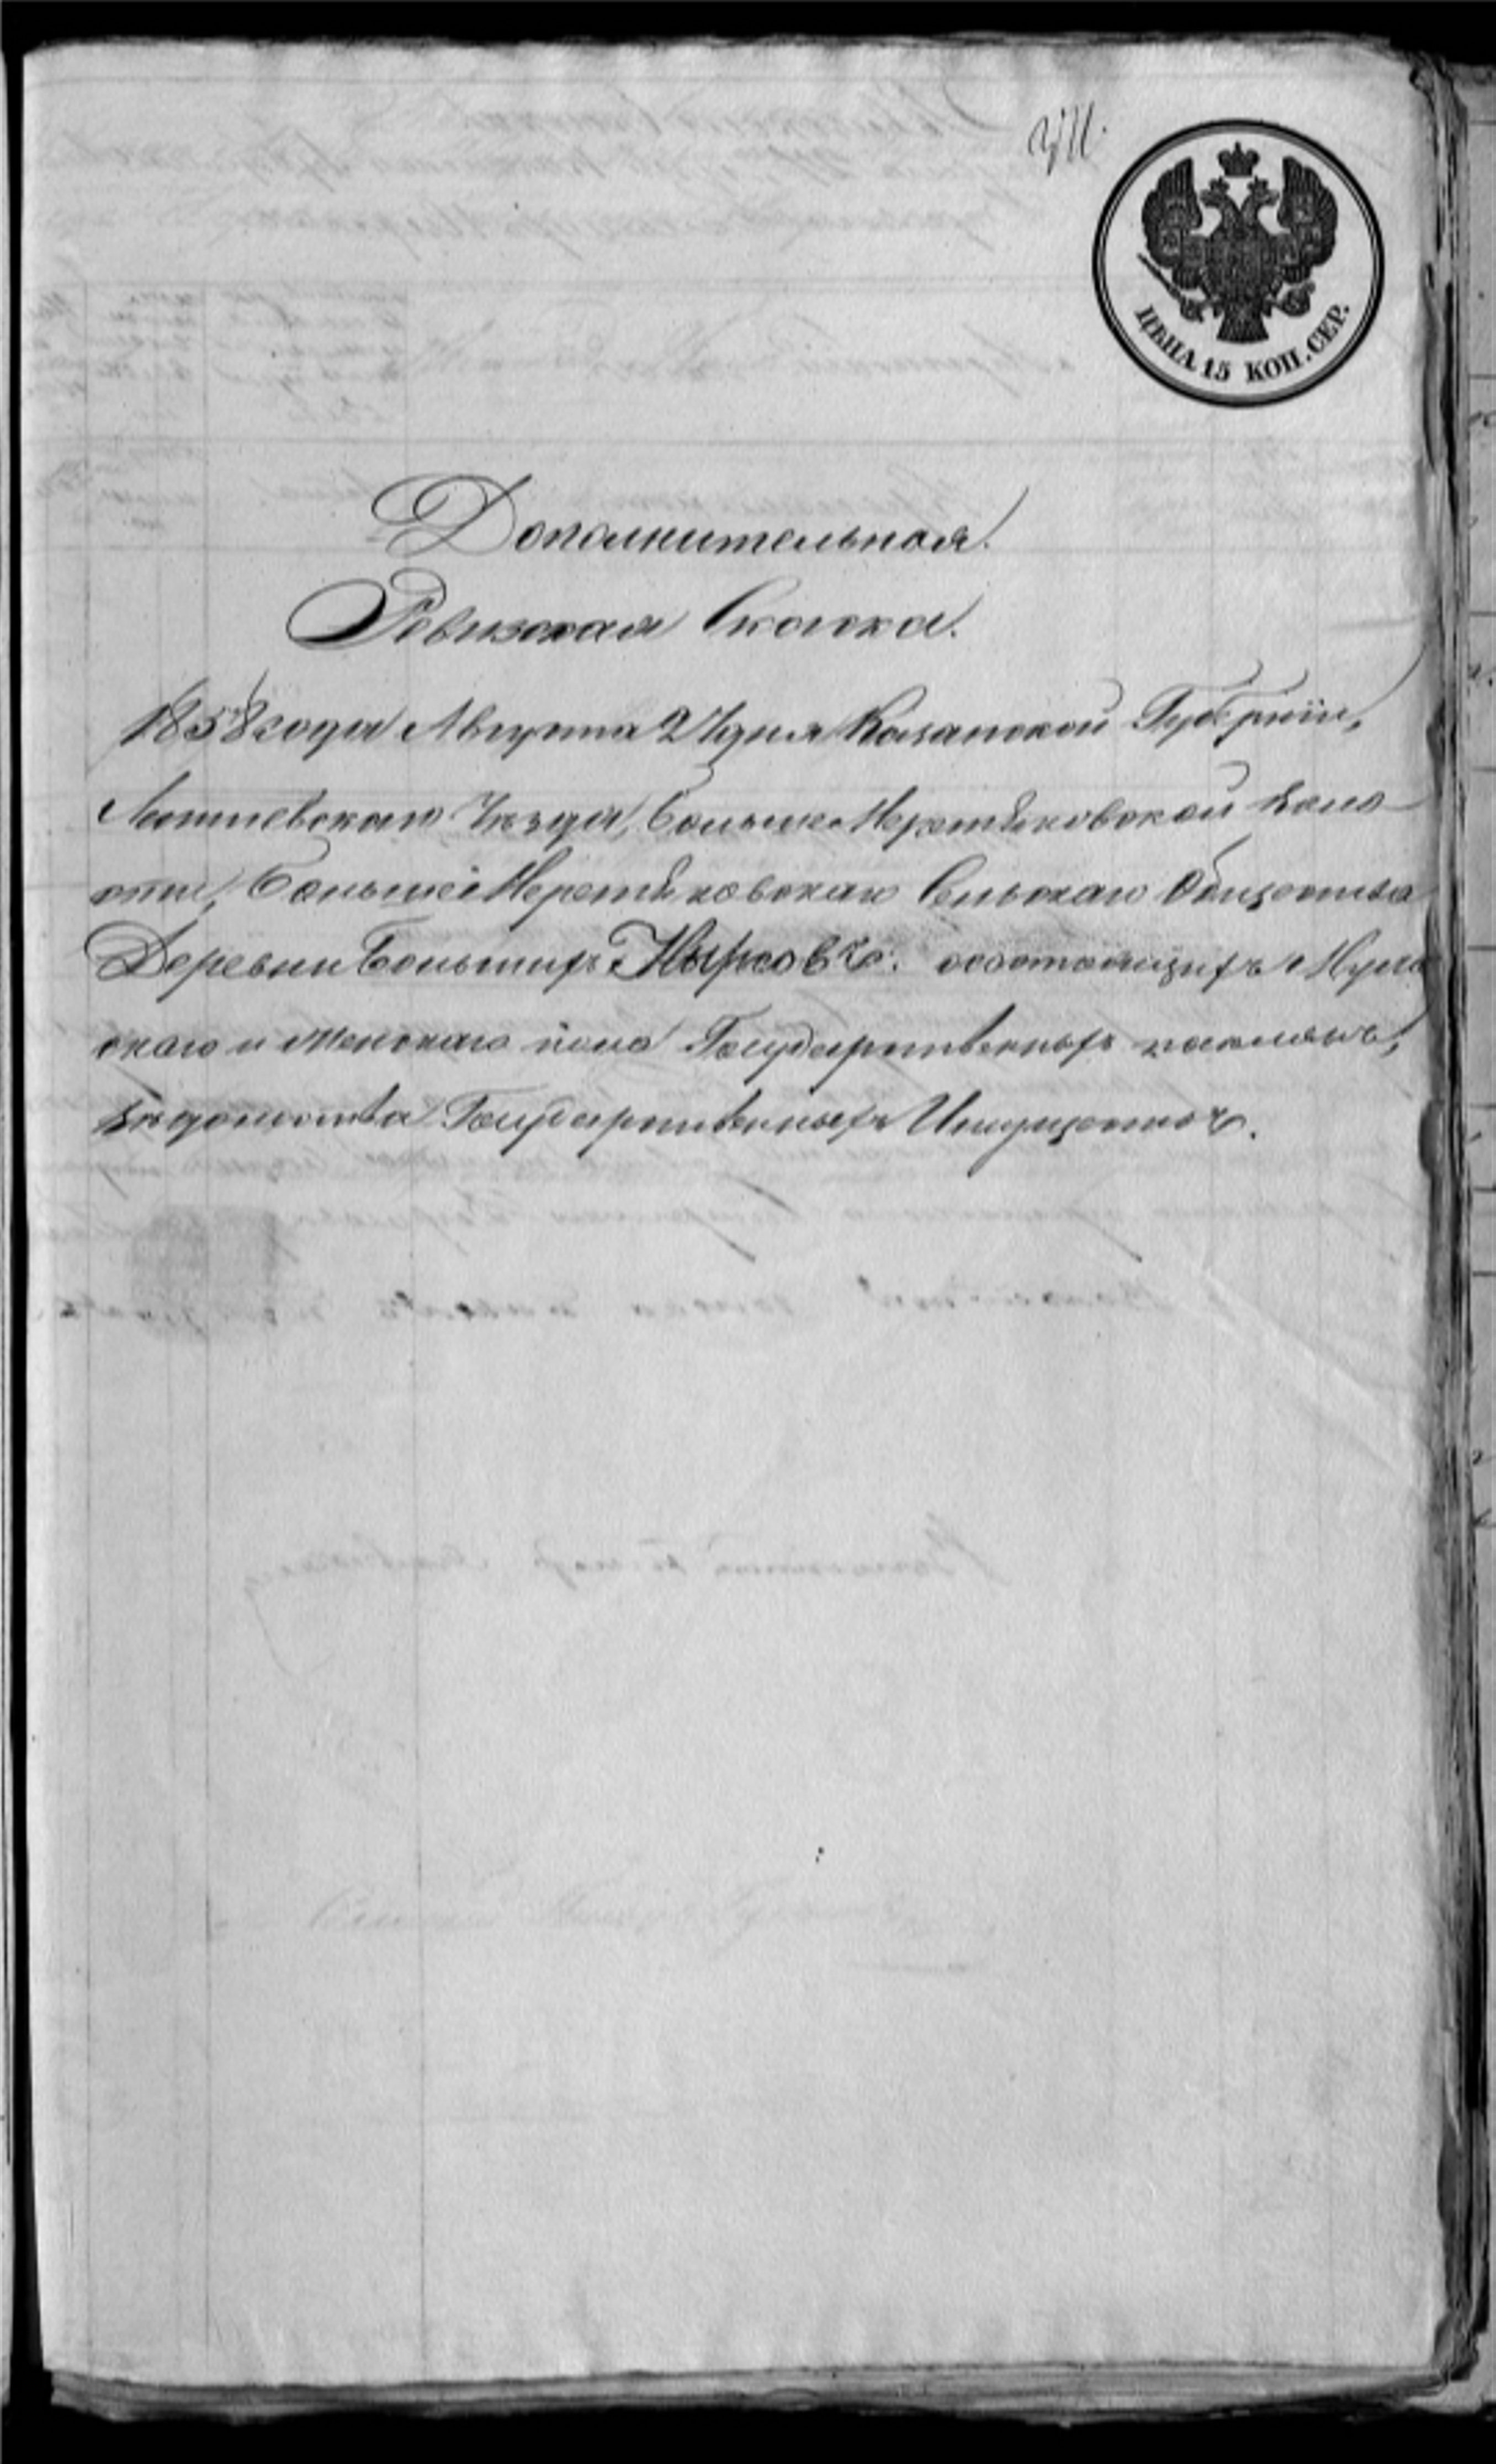 ЦѢНА 15 КОП. СЕР.
Дополнительная
Ревизская Сказка.
1858 года Августа дня Казанской Губернiи,
Лаишевскаго Уѣзда, Больше Меретяковской Воло-
сти, Больше Меретяковскаго Сельскаго Общества
Деревни Большихъ Нырсовъ. состоящихъ Муже-
скаго и Женскаго пола Государственныхъ
вѣдомства Государственныхъ Имуществъ.